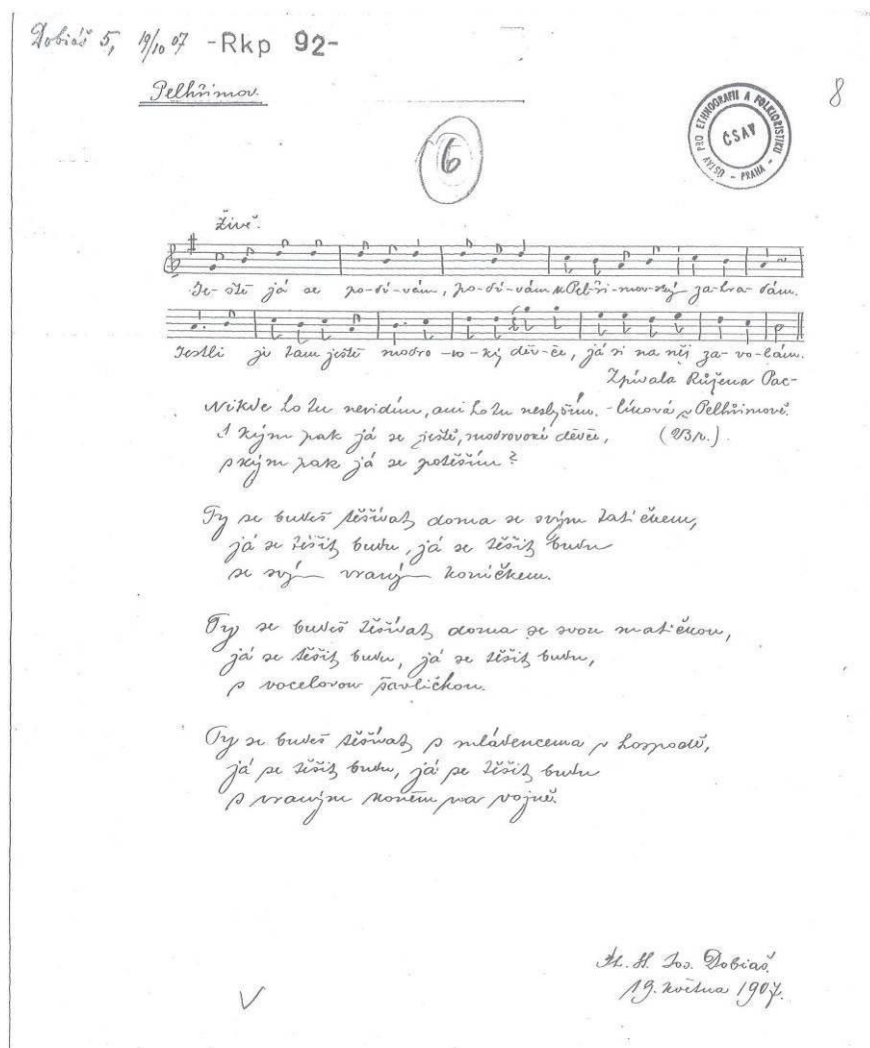 Dobiáš 5, 19/10 07 -Rkp 92-
Pelhřimov.
8
ÚSTAV PRO ETHNOGRAFII A FOLKLORISTIKU - PRAHA -
ČSAV
6
Živě.
Je-ště já se po-dí-vám, po-dí-vám k Pel-ři-mov-ský za-hra-dám.
Jestli je tam ještě modro-vo-ký děv-če, já si na něj za-vo-lám.
Zpívala Růžena Pac-
Nikde ho tu nevidím, ani ho tu neslyším. -líková z Pelhřimově.
S kým pak já se ještě, modrovoké děvče,
s kým pak já se potěším?
Ty se budeš těšívat doma se svým tatíčkem,
já se těšit budu, já se těšit budu
se svým vraným koníčkem.
Ty se budeš těšívat doma se svou matičkou,
já se těšit budu, já se těšit budu,
s vocelovou šavličkou.
Ty se budeš těšívat s mládencema v hospodě,
já se těšit budu, já se těšit budu
s vraným koněm na vojně.
Jos. Dobiáš.
19. května 1907.